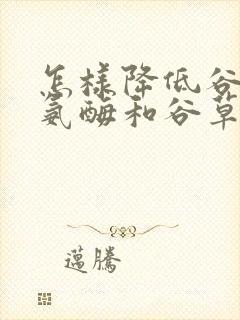 怎样降低谷
氨酶和谷草
邁騰